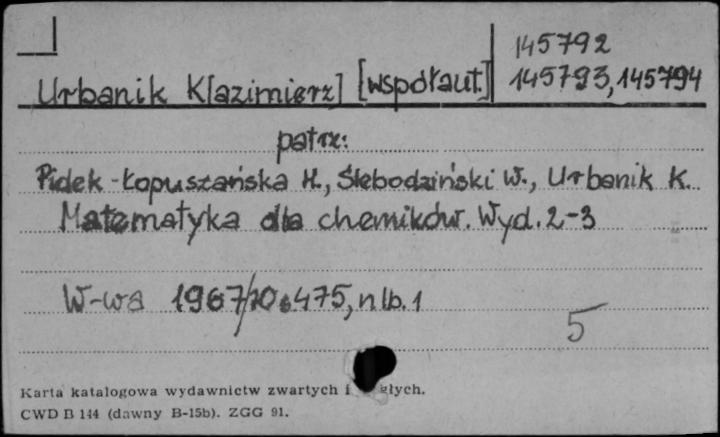 145792
Urbanik K[azimierz] [współaut.] 145793, 145794
patrz:
Pidek-Łopuszańska H., Ślebodziński W., Urbanik K.
Matematyka dla chemików. Wyd. 2-3
W-wa 1967/70 s 475, nlb. 1
5
Karta katalogowa wydawnictw zwartych i głych.
CWD B 144 (dawny B-15b). ZGG 91.